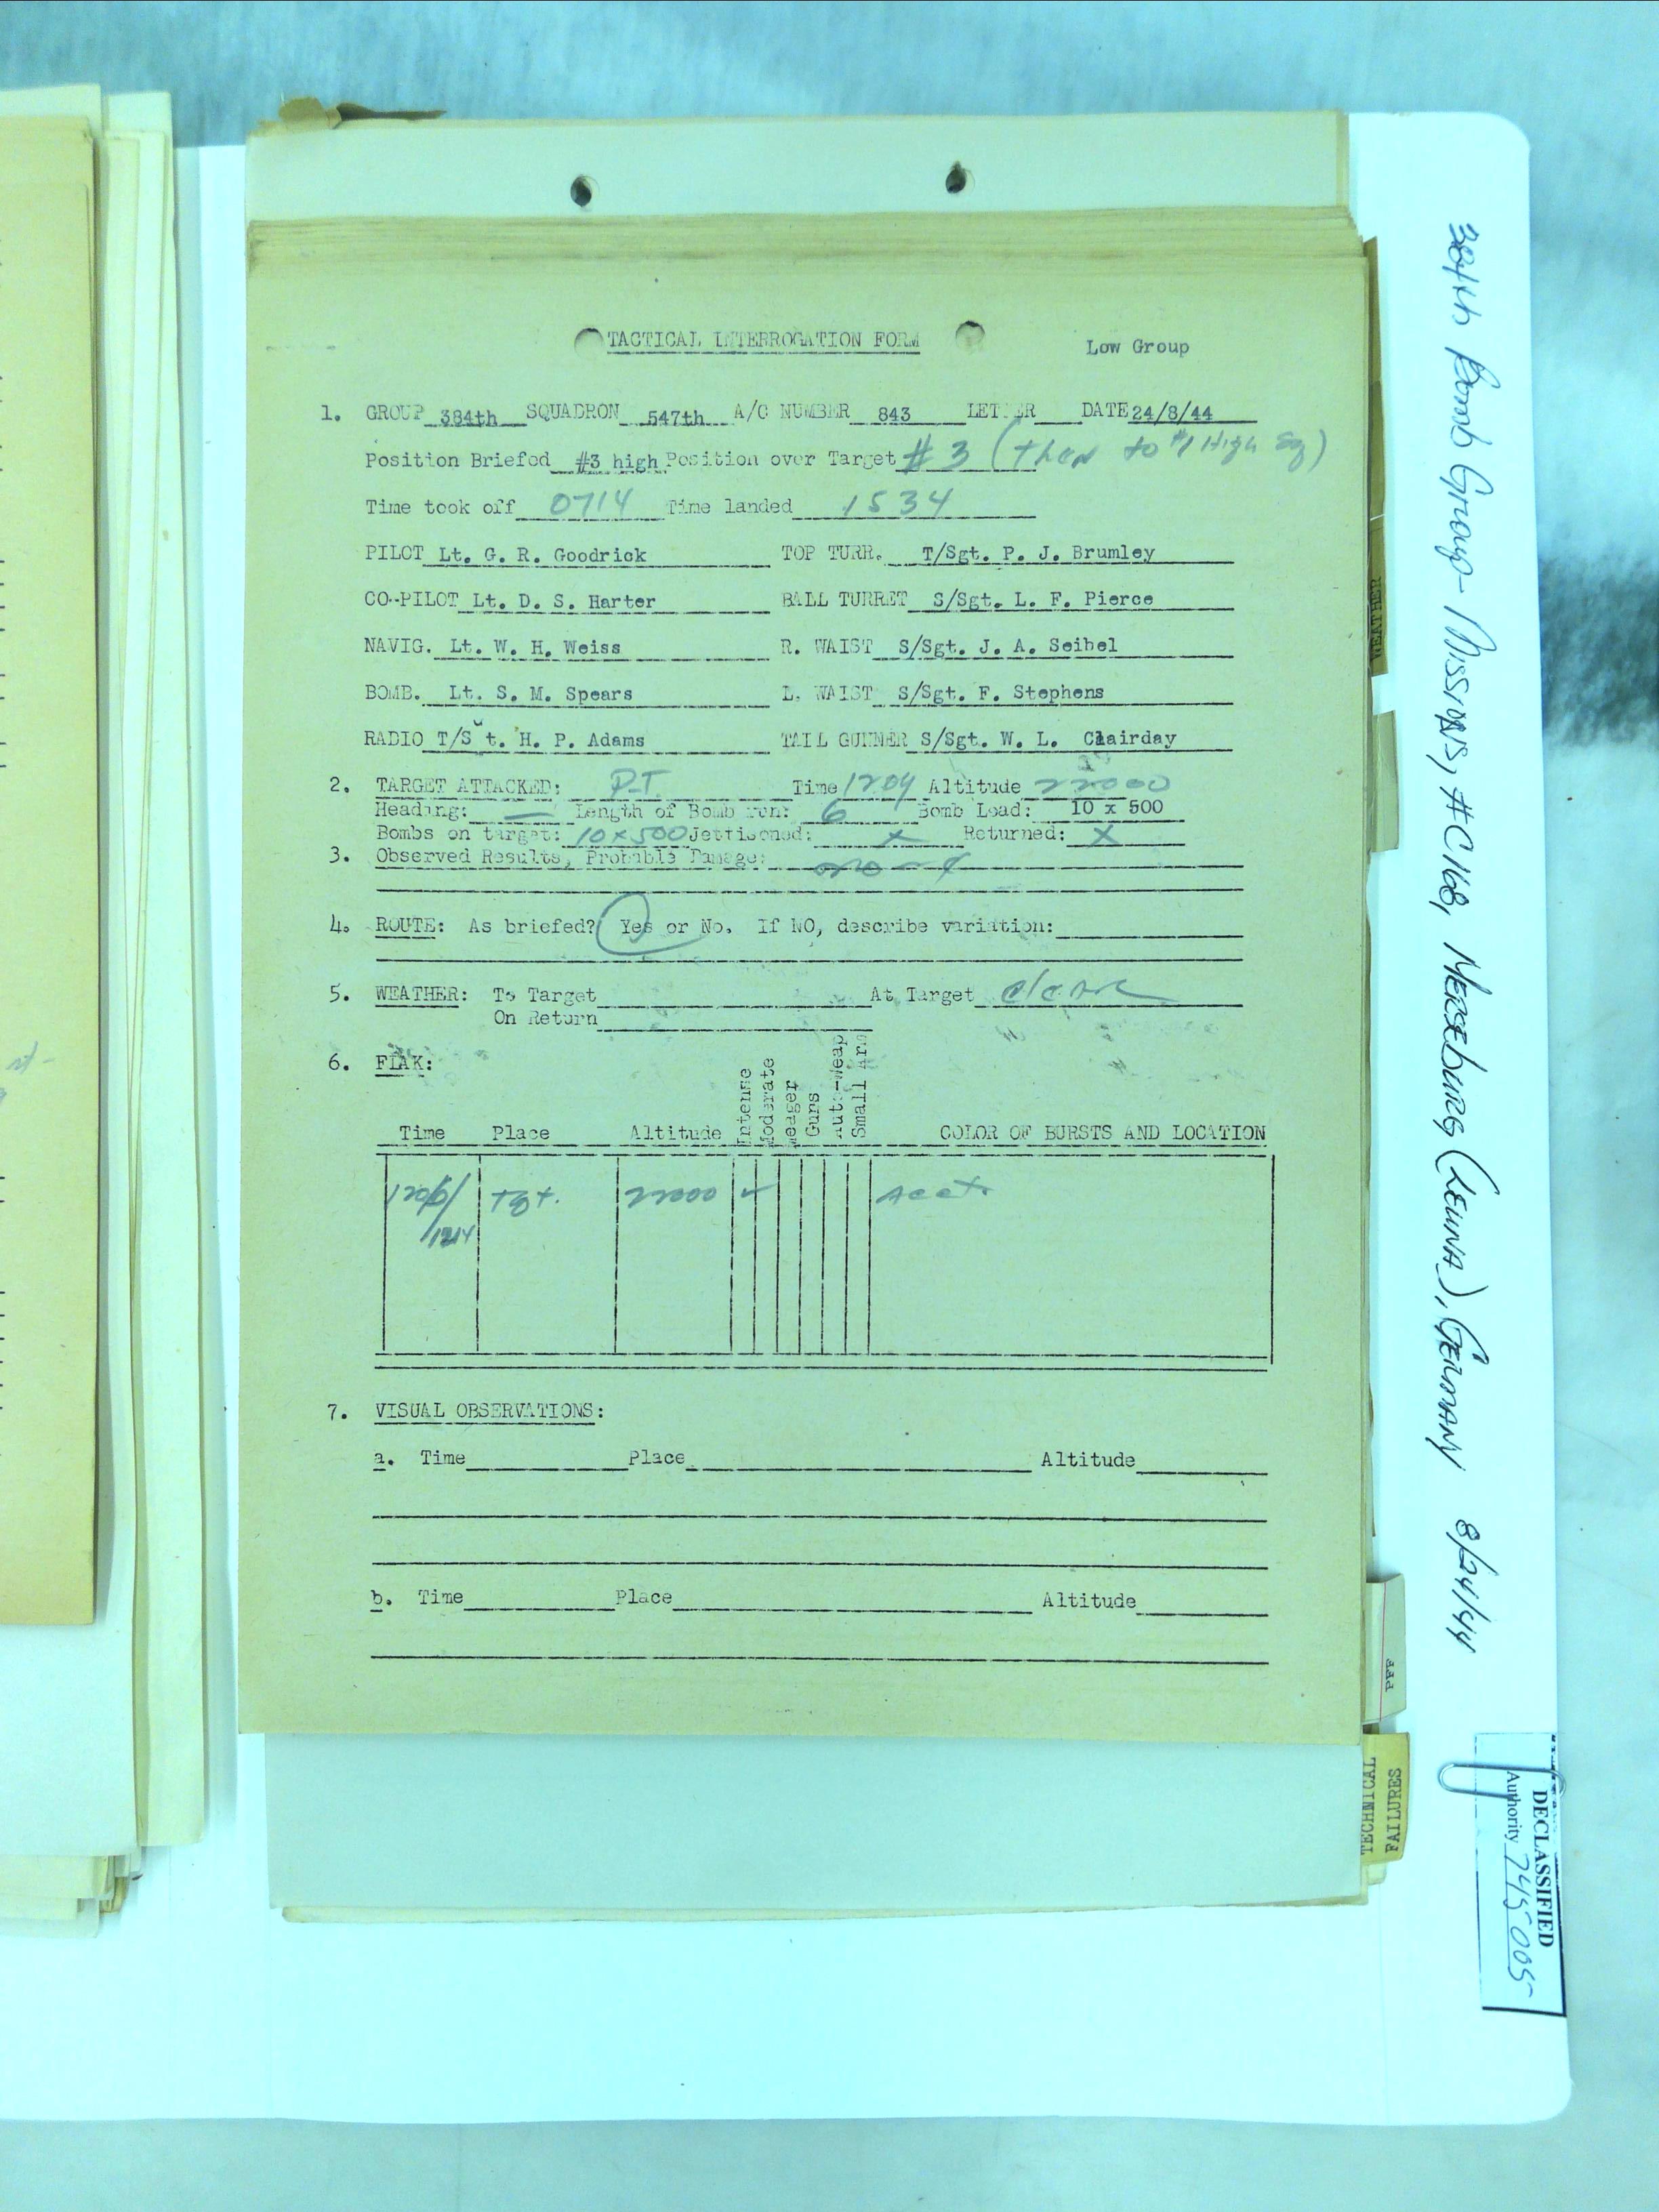 TACTICAL INTERROGATION FORM
Low Group
1. GROUP 384th SQUADRON 547th A/C NUMBER 843 LETTER DATE 24/8/44
Position Briefed #3 high Position over Target #3 (then to #1 High Sq)
Time took off 0714 Time landed 1534
PILOT Lt. G. R. Goodrick TOP TURR. T/Sgt. P. J. Brumley
CO-PILOT Lt. D. S. Harter BALL TURRET S/Sgt. L. F. Pierce
NAVIG. Lt. W. H. Weiss R. WAIST S/Sgt. J. A. Seibel
BOMB. Lt. S. M. Spears L. WAIST S/Sgt. F. Stephens
RADIO T/S t. H. P. Adams TAIL GUNNER S/Sgt. W. L. Clairday
2. TARGET ATTACKED: P.I. Time 1209 Altitude 22000
Heading: — Length of Bomb run: 6 Bomb Load: 10 x 500
Bombs on target: 10x500 Jettisoned: x Returned: X
3. Observed Results, Probable Damage:
4. ROUTE: As briefed? Yes or No. If NO, describe variation:
5. WEATHER: To Target At Target clear
On Return
6. FLAK:
Time Place Altitude Intense Moderate Meager Guns Auto-Weap Small Arm COLOR OF BURSTS AND LOCATION
tgt. 22000 ✓ acct.
1214
7. VISUAL OBSERVATIONS:
a. Time Place Altitude
b. Time Place Altitude
384th Bomb Group - Missions, #C168, MERSEBURG (LEUNA), GERMANY 8/24/44
WEATHER
PFF
TECHNICAL
FAILURES
DECLASSIFIED
Authority 745005